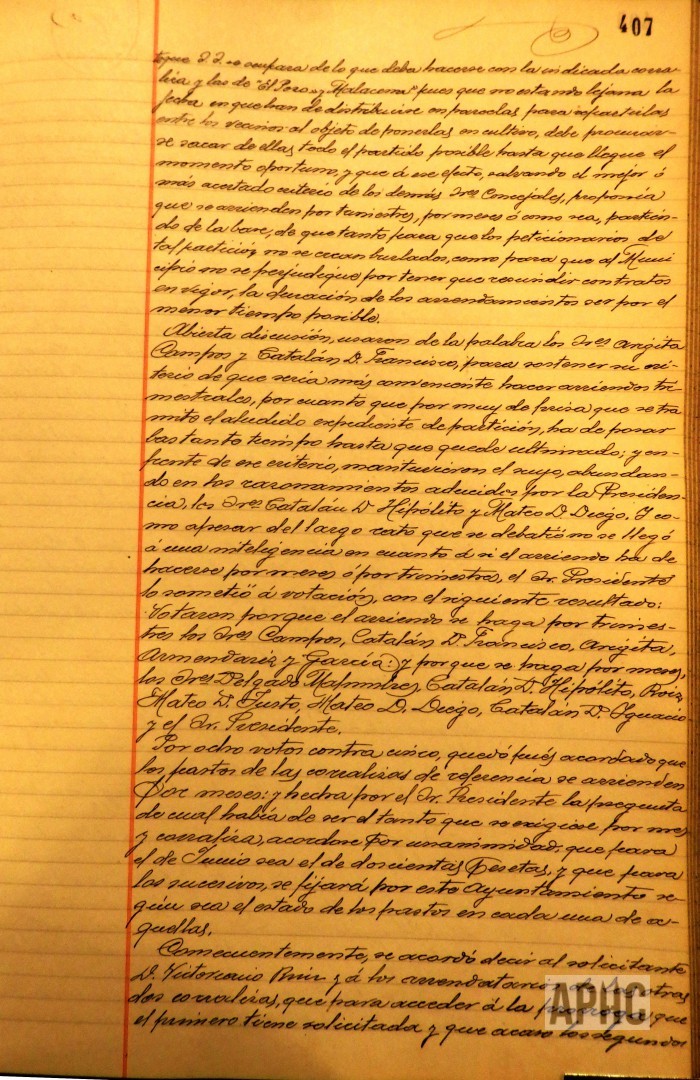 407
que S. S. se ocupara de lo que deba hacerse con la indicada corra-
liza y las de "El Poso" y "Malacena" pues que no estando lejana la
fecha en que han de distribuirse en parcelas para repartirlas
entre los vecinos al objeto de ponerlas en cultivo, debe procurar-
se sacar de ellas todo el partido posible hasta que llegue el
momento oportuno, y que á ese efecto, salvando el mejor ó
más acertado criterio de los demás Sres Concejales, proponía
que se arrienden por trimestres, por meses ó como sea, partien-
do de la base, de que tanto para que los peticionarios de
tal partición no se crean burlados, como para que al Muni-
cipio no se perjudique por tener que rescindir contratos
en vigor, la duración de los arrendamientos ser por el
menor tiempo posible.
Abierta discusión, usaron de la palabra los Sres Angita
Campos y Catalán D. Francisco, para sostener su cri-
terio de que sería más conveniente hacer arriendos tri-
mestrales, por cuanto que por muy de prisa que se tra-
mite el aludido expediente de partición, ha de pasar
bastante tiempo hasta que quede ultimado; y en-
frente de ese criterio, mantuvieron el suyo, abundan-
do en los razonamientos aducidos por la Presiden-
cia, los Sres Catalán D. Hipólito y Mateo D. Diego. Y co-
mo apesar del largo rato que se debatió no se llegó
á una inteligencia en cuanto á si el arriendo ha de
hacerse por meses ó por trimestres, el Sr. Presidente
lo sometió á votación, con el siguiente resultado:
Votaron porque el arriendo se haga por trimes-
tres los Sres Campos, Catalán D. Francisco, Angita,
Armendariz y García: y porque se haga por meses,
los Sres Delgado Catalán D. Hipólito, Ruiz,
Mateo D. Justo, Mateo D. Diego, Catalán D. Ignacio
y el Sr. Presidente.
Por ocho votos contra cinco, quedó pués acordado que
los pastos de las corralizas de referencia se arrienden
por meses: y hecha por el Sr. Presidente la pregunta
de cual había de ser el tanto que se exigiese por mes
y corraliza, acordose por unanimidad, que para
el de Junio sea el de doscientas pesetas, y que para
los sucesivos, se fijará por este Ayuntamiento se-
gún sea el estado de los pastos en cada una de a-
quellas.
Consecuentemente, se acordó decir al solicitante
D. Victoriano Ruiz y á los arrendatarios de las otras
dos corralizas, que para acceder á la prórroga que
el primero tiene solicitada y que acaso los segundos
APHC